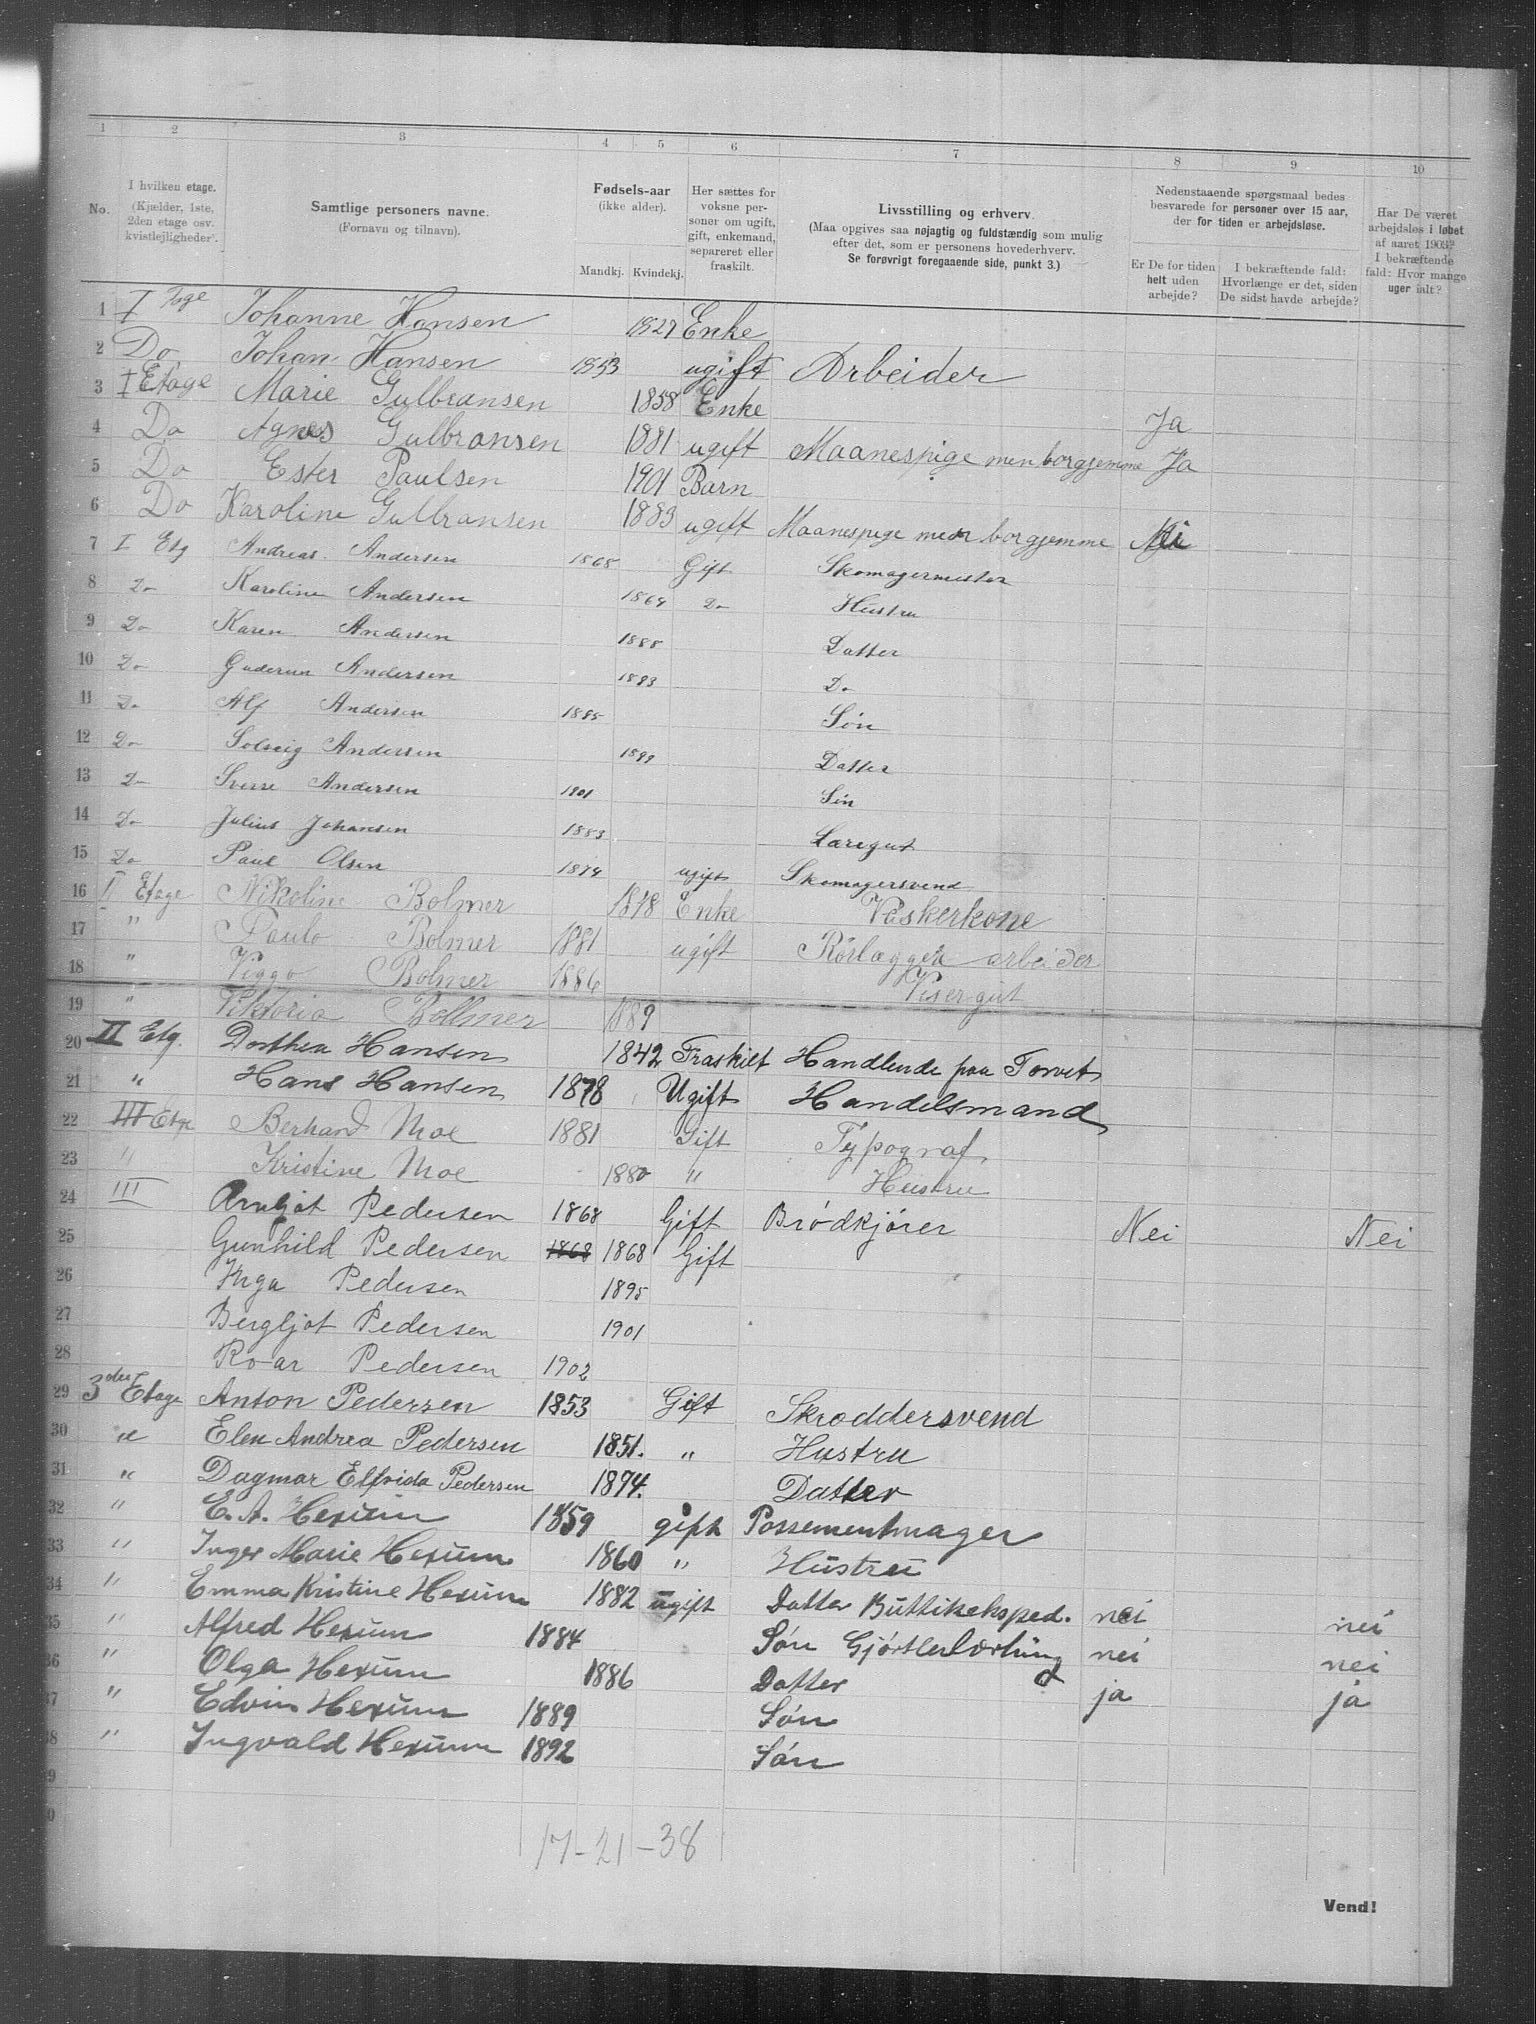 1 2 3 4 5 6 7 8 9 10
No.
I hvilken etage.
(Kjælder, 1ste,
2den etage osv.
kvistlejligheder).
Samtlige personers navne.
(Fornavn og tilnavn).
Fødsels-aar
(ikke alder).
Mandkj. Kvindekj.
Her sættes for
voksne per-
soner om ugift,
gift, enkemand,
separeret eller
fraskilt.
Livsstilling og erhverv.
(Maa opgives saa nøjagtig og fuldstændig som mulig
efter det, som er personens hovederhverv.
Se forøvrigt foregaaende side, punkt 3.)
Nedenstaaende spørgsmaal bedes
besvarede for personer over 15 aar,
der for tiden er arbejdsløse.
Er De for tiden
helt uden
arbejde?
I bekræftende fald:
Hvorlænge er det, siden
De sidst havde arbejde?
Har De været
arbejdsløs i løbet
af aaret 1903?
I bekræftende
fald: Hvor mange
uger ialt?
1 I Johanne Hansen 1827 Enke
2 Do Johan Hansen 1853 ugift Arbeider
3 I Etage Marie Gulbransen 1858 Enke Ja
4 Do Agnes Gulbransen 1881 ugift Maanespige men borgjemme Ja
5 Do Ester Paulsen 1901 Barn
6 Do Karoline Gulbransen 1883 ugift Maanespige men borgjemme Nei
7 I Etg Andreas Andersen 1868 Gift Skomagermester
8 Do Karoline Andersen 1864 Do Hustru
9 Do Karen Andersen 1888 Datter
10 Do Guderun Andersen 1893 Do
11 Do Alf Andersen 1895 Søn
12 Do Solveig Andersen 1899 Datter
13 Do Sverre Andersen 1901 Søn
14 Do Julius Johansen 1883 Læregut
15 Do Paul Olsen 1874 ugift Skomagersvend
16 I Etage Nikoline Bolmer 1848 Enke Vaskerkone
17 " Paulo Bolmer 1881 ugift Rørlægger arbeider
18 " Viggo Bolmer 1886 Visergut
19 " Viktoria Bollmer 1889
20 II Etg. Dorthea Hansen 1842 Fraskilt Handlende paa Torvet
21 " Hans Hansen 1878 Ugift Handelsmand
22 III Etg Berhard Moe 1881 Gift Typograf
23 " Kristine Moe 1880 " Hustru
24 III Arnljot Pedersen 1868 Gift Brødkjører Nei Nei
25 Gunhild Pedersen 1868 1868 Gift
26 Inga Pedersen 1895
27 Bergljot Pedersen 1901
28 Roar Pedersen 1902
29 3die Etage Anton Pedersen 1853 Gift Skræddersvend
30 " Elen Andrea Pedersen 1851. " Hustru
31 " Dagmar Elfrida Pedersen 1894. Datter
32 " E. A. Hexum 1859 gift Possementmager
33 " Inger Marie Hexum 1860 " Hustru
34 " Emma Kristine Hexum 1882 ugift Datter Buttikeksped. nei nei
35 " Alfred Hexum 1884 Søn Gjørtlerlærling nei nei
36 " Olga Hexum 1886 Datter ja ja
37 " Edvin Hexum 1889 Søn
38 " Ingvald Hexum 1892 Søn
17-21-38
Vend!